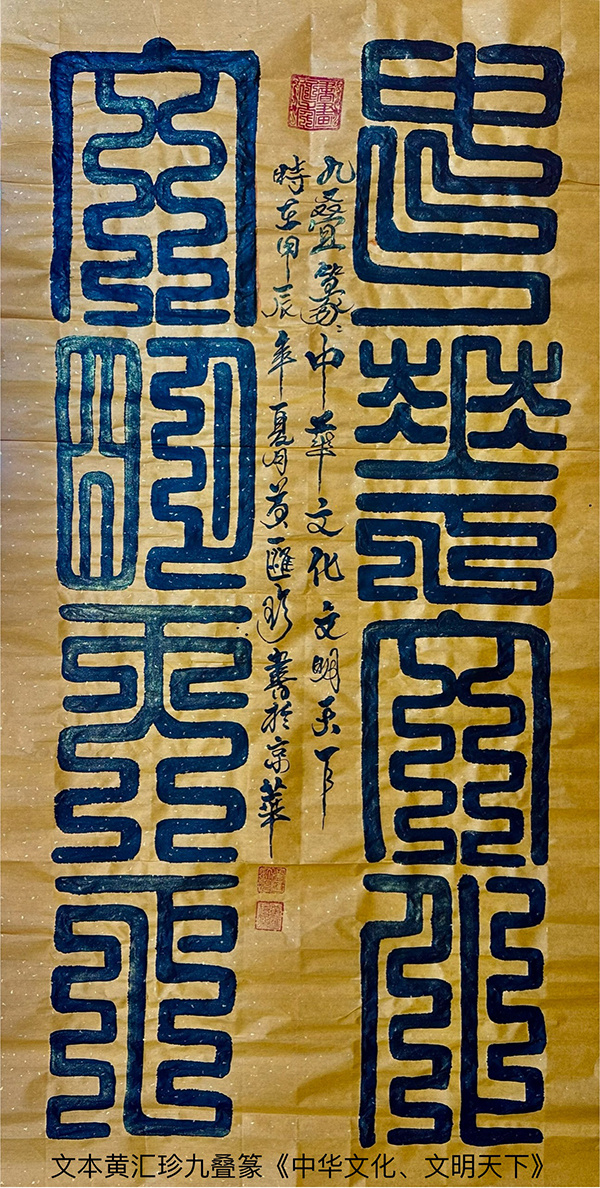 中華文化
文明天下
九叠篆中華文化文明天下
時在甲辰年夏月黄匯珍書於京華
文本黄汇珍九叠篆《中华文化、文明天下》